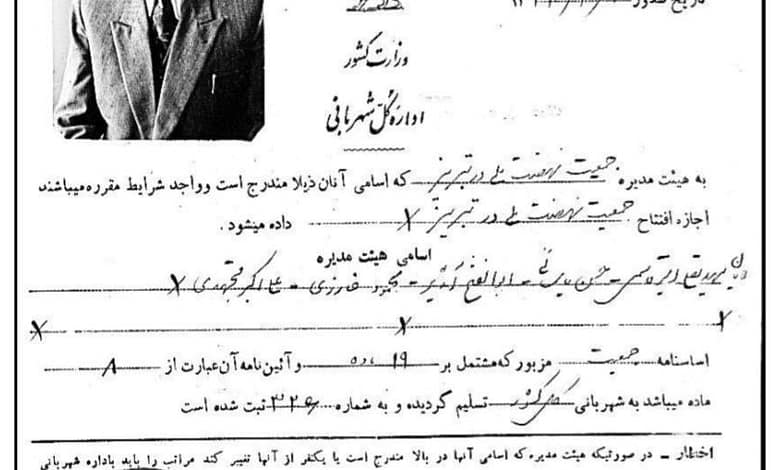 تاریخ صدور
وزارت کشور
اداره کل شهربانی
به هیئت مدیره جمعیت نهضت ملی در تبریز که اسامی آنان ذیلا مندرج است و واجد شرایط مقرره میباشند
اجازه افتتاح جمعیت نهضت ملی در تبریز X داده میشود .
اسامی هیئت مدیره
آقایان - حسن - ابوالفتح - محمود - علی اکبر مجتهدی X
X X X
اساسنامه جمعیت مزبور که مشتمل بر ۱۹ ماده و آئین نامه آن عبارت از ۸
ماده میباشد به شهربانی کل کشور تسلیم گردیده و به شماره ثبت شده است
اخطار - در صورتیکه هیئت مدیره که اسامی آنها در بالا مندرج است یا یکنفر از آنها تغییر کند مراتب را باید باداره شهربانی